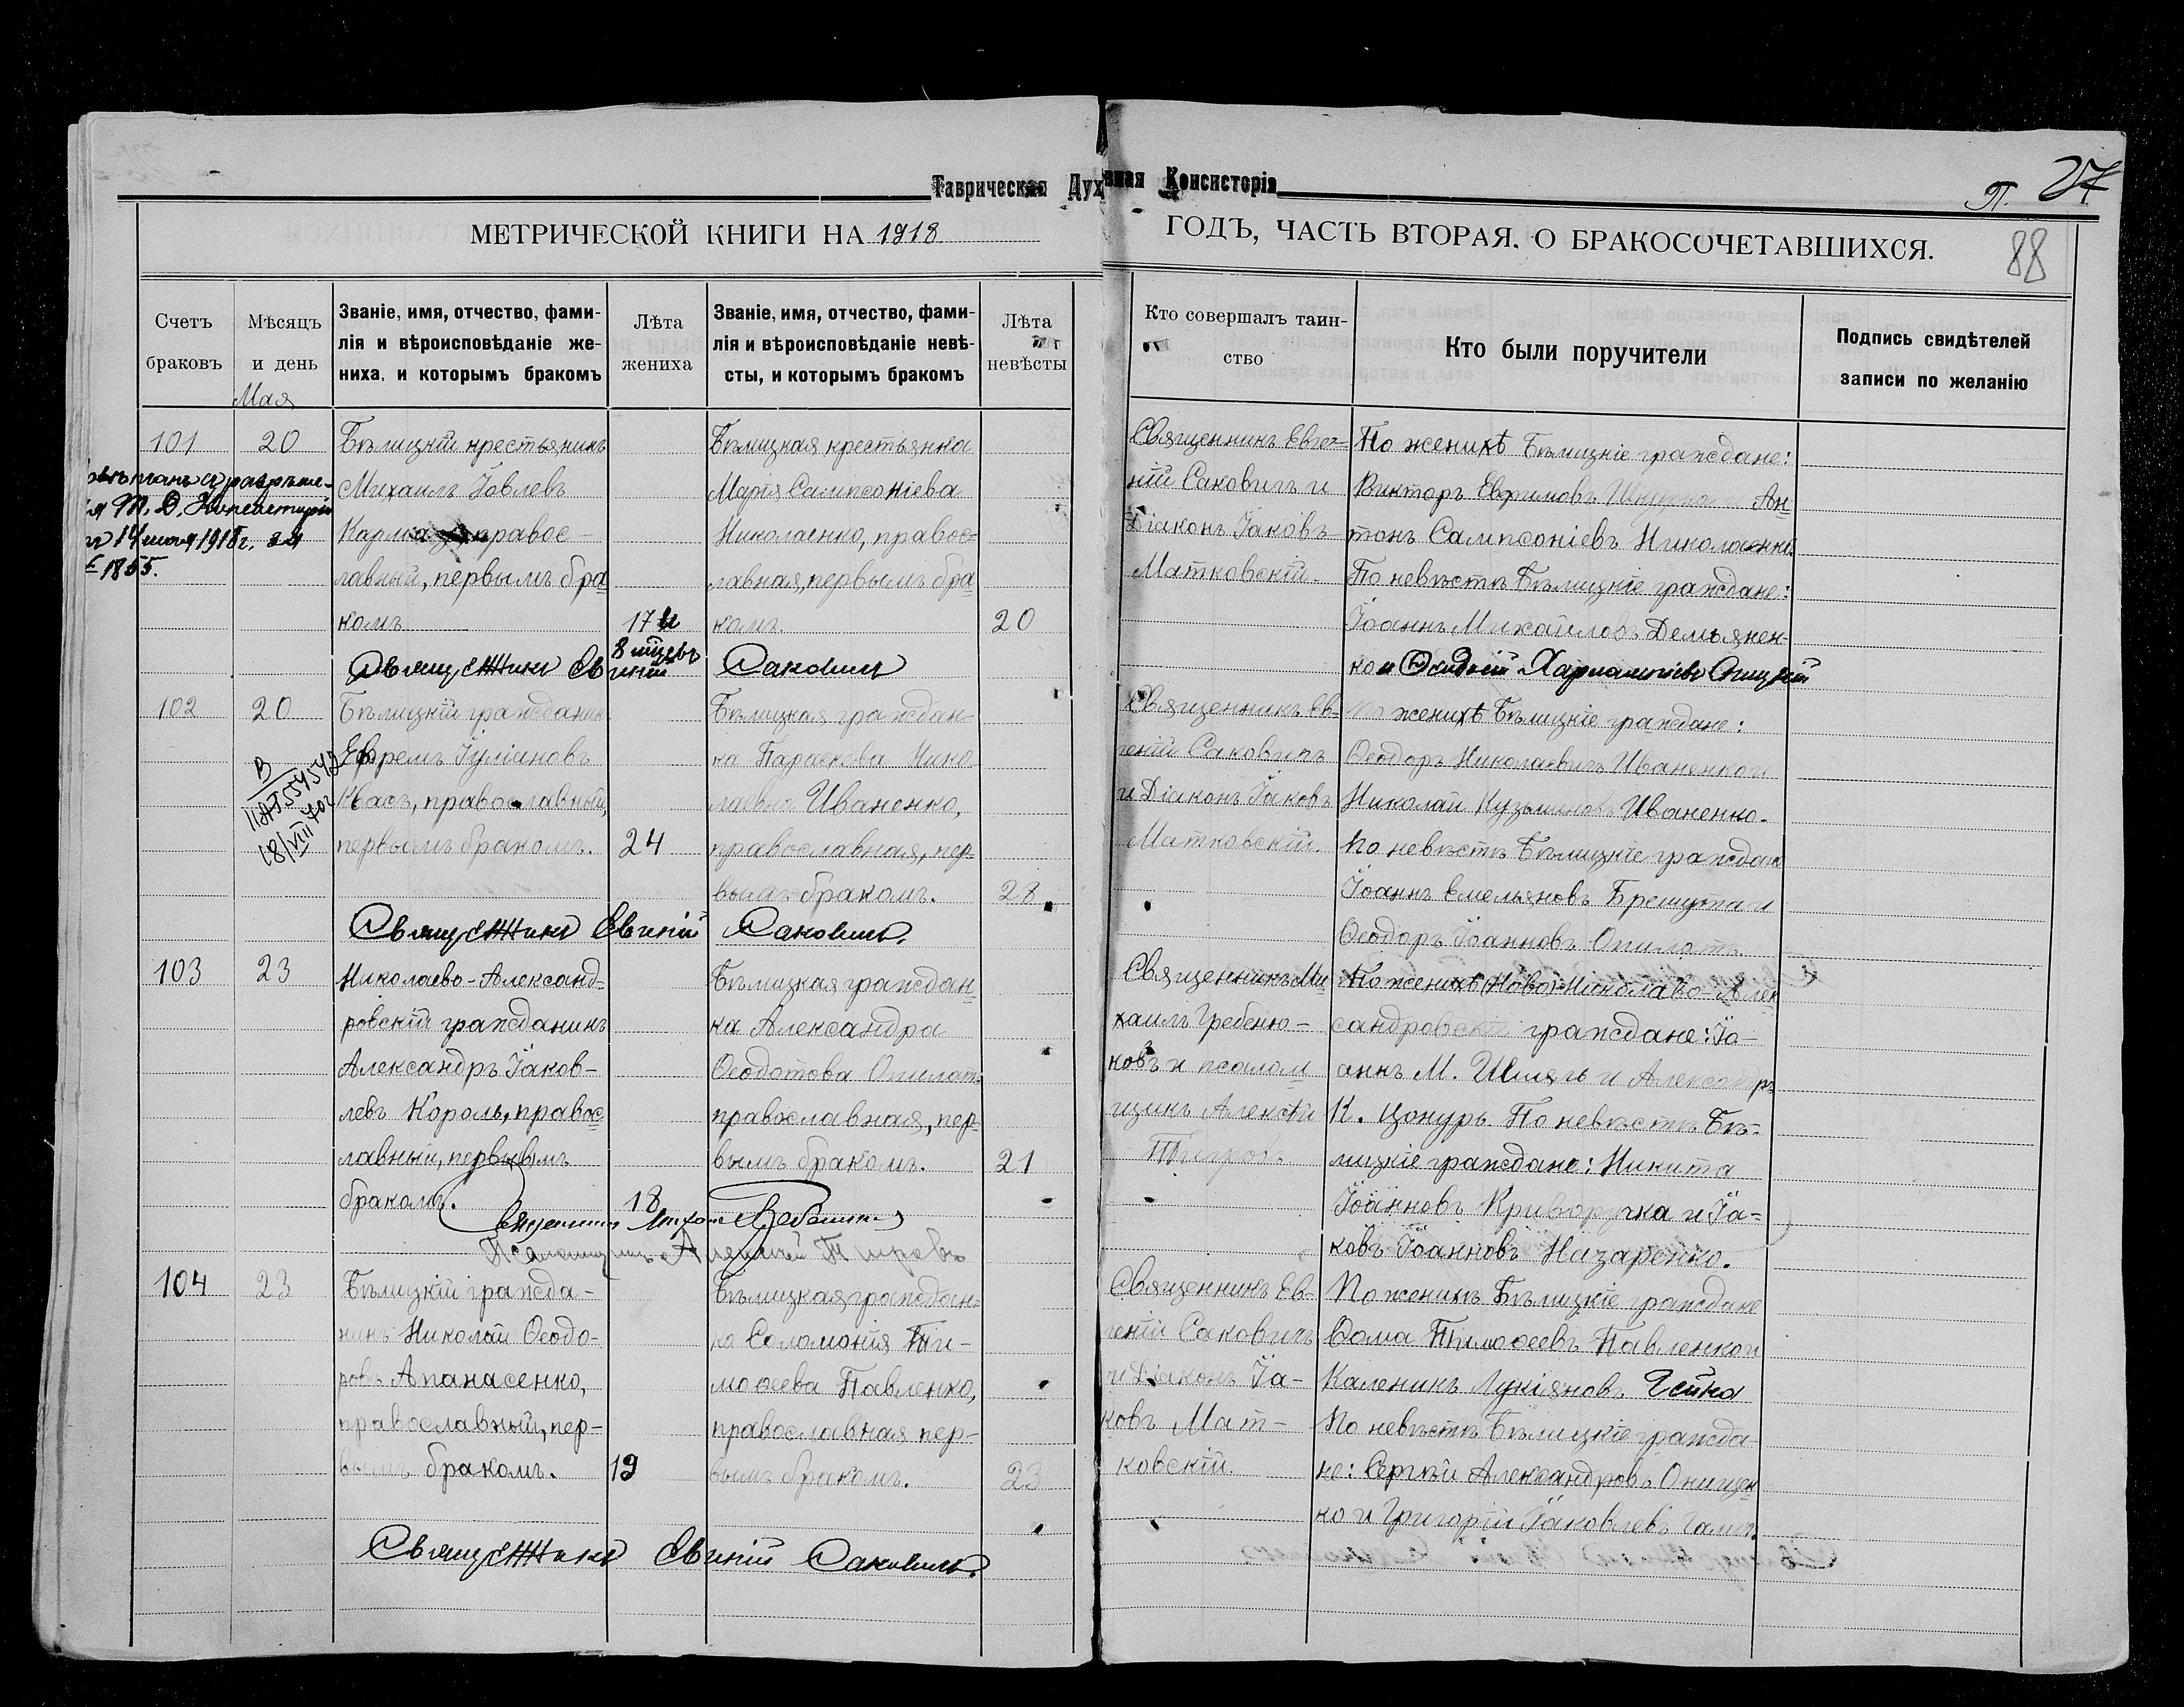 Таврическая Духовная Консисторія
П. 27
МЕТРИЧЕСКОЙ КНИГИ НА 1918
ГОДЪ, ЧАСТЬ ВТОРАЯ, О БРАКОСОЧЕТАВШИХСЯ.
88
Счетъ браковъ
Мѣсяцъ и день
Званіе, имя, отчество, фами-
лія и вѣроисповѣданіе же-
ниха, и которымъ бракомъ
Лѣта жениха
Званіе, имя, отчество, фами-
лія и вѣроисповѣданіе невѣ-
сты, и которымъ бракомъ
Лѣта невѣсты
Кто совершалъ таин-
ство
Кто были поручители
Подпись свидѣтелей
записи по желанію
Мая
101
20
Бѣлицкій крестьянинъ
Михаилъ Іовлевъ
Карма правос-
лавный, первымъ бра
комъ
17 и
8 мцевъ
Бѣлицкая крестьянка
Марія Сампсоніева
Николаенко, правос-
лавная, первымъ бра
комъ.
20
Священникъ Евге-
ній Саковичъ и
Діаконъ Іаковъ
Матковскій.
По женихѣ Бѣлицкіе граждане:
Викторъ Ефримовъ и Ан-
тонъ Сампсоніевъ Николаенко
По невѣстѣ Бѣлицкіе граждане:
Іоаннъ Михаиловъ Демьянен-
ко и
Т. Д. Консисторіи
14 1918г. за
№ 1855.
Священникъ Евгеній Саковичъ
102
20
Бѣлицкій гражданин
Ефремъ Іуліановъ
Квасъ, православный,
первымъ бракомъ.
24
Бѣлицкая граждан-
ка Параскева Нико
лаевна Иваненко,
православная, пер-
вымъ бракомъ.
28
Священникъ Ев-
геній Саковичъ
и Діаконъ Іаковъ
Матковскій.
По женихѣ Бѣлицкіе граждане:
Ѳеодоръ Николаевичъ Иваненко и
Николай Кузьминовъ Иваненко.
По невѣстѣ Бѣлицкіе граждан
Іоаннъ Емельяновъ Брешута и
Ѳеодоръ Іоанновъ Опилатъ.
Священникъ Евгеній Саковичъ.
103
23
Николаево-Александ-
ровскій гражданинъ
Александръ Іаков-
левъ Король, правос
лавный, первымъ
бракомъ.
18
Бѣлицкая граждан-
ка Александра
Ѳеодотова Опилатъ
православная, пер-
вымъ бракомъ.
21
Священникъ Ми
хаилъ Гребеню-
ковъ и псалом
щикъ Алексѣй
По женихѣ (Ново)-Николаево-Алек
сандровскіе граждане: Іо-
аннъ М. Шмягъ и Александръ
К. Цокуръ По невѣстѣ Бѣ-
лицкіе граждане: Никита
Іоанновъ Криворучка и Іа-
ковъ Іоанновъ Назаренко.
104
23
Бѣлицкій гражда-
нинъ Николай Ѳеодо-
ровъ Апанасенко,
православный, пер-
вымъ бракомъ.
19
Бѣлицкая граждан-
ка Соломонія Ти-
моѳеева Павленко,
православная пер-
вымъ бракомъ.
23
Священникъ Ев-
геній Саковичъ
и Діаконъ Іа-
ковъ Мат-
ковскій.
По женихѣ Бѣлицкіе граждане
Ѳома Тимоѳеевъ Павленко и
Каленикъ Лукіяновъ Гейко
По невѣстѣ Бѣлицкіе гражда-
не: Сергѣй Александровъ Онищен-
ко и Григорій Іаковлевъ
Священникъ Евгеній Саковичъ.